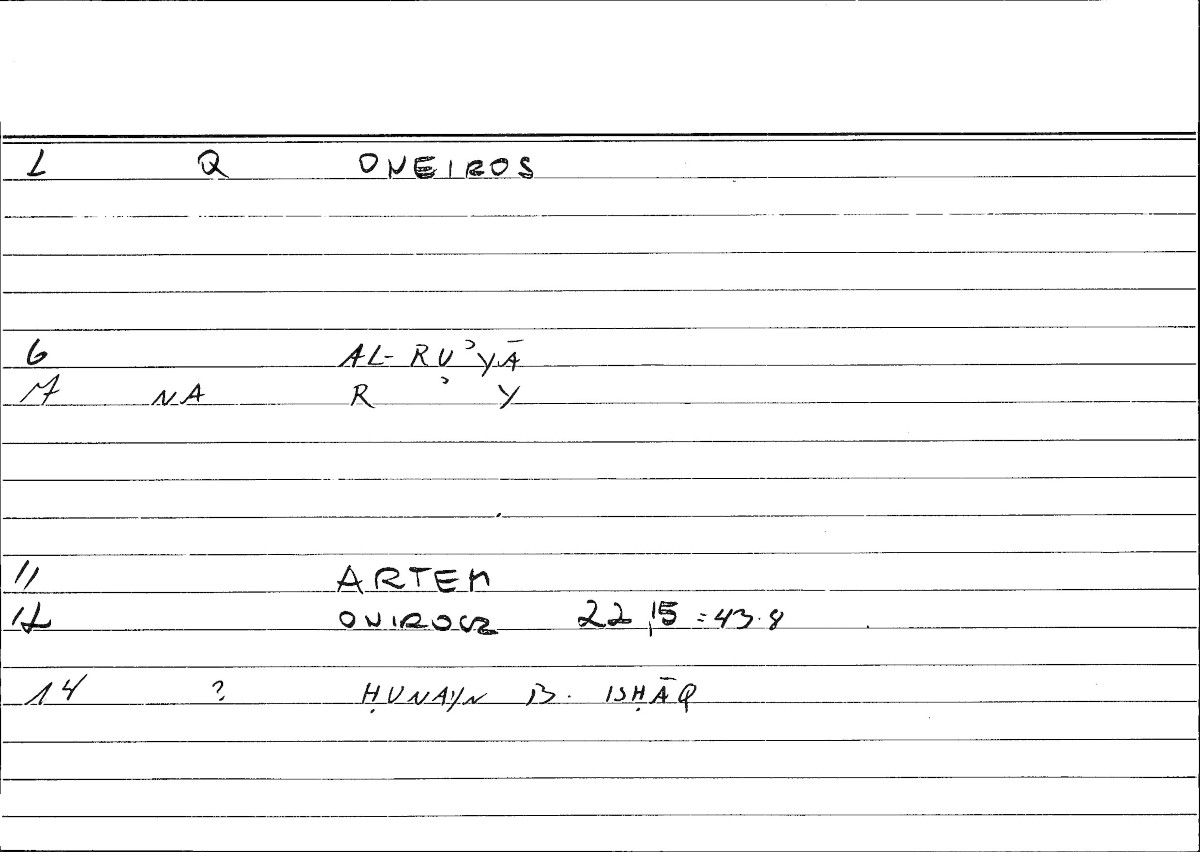 1 Q ONEIROS
6 AL-RUʾYĀ
7 NA R ʾ Y
11 ARTEM
12 ONIROCR 22,15 = 43.8
14 ? ḤUNAYN B. ISḤĀQ